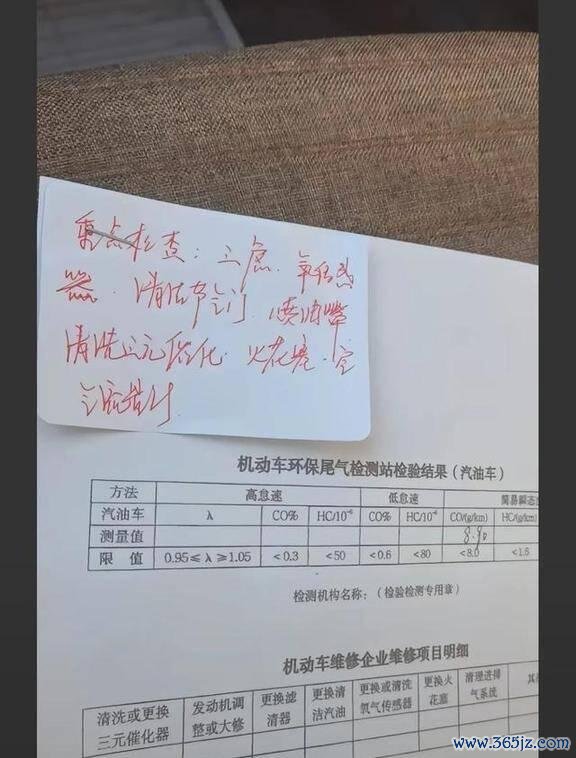 重点检查：三虑. 氧传感
器. 清洁节气门. 喷油嘴
清洗三元催化. 火花塞. 空
气流量计
机动车环保尾气检测站检验结果（汽油车）
方法 高怠速 低怠速 简易瞬态
汽油车 λ CO% HC/10⁻⁶ CO% HC/10⁻⁶ CO/(g/km) HC/(g/km)
测量值 8.90
限 值 0.95≤λ≥1.05 <0.3 <50 <0.6 <80 <8.0 <1.6
检测机构名称：（检验检测专用章）
机动车维修企业维修项目明细
清洗或更换三元催化器 发动机调整或大修 更换滤清器 更换清洁汽油 更换或清洗氧气传感器 更换火花塞 清理进排气系统
www.365jz.com